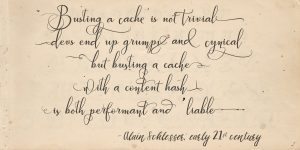 'Busting a cache' is not trivial
devs end up grumpy and cynical
but busting a cache
with a content hash
is both performant and 'liable
- Alain Schlesser, early 21st century